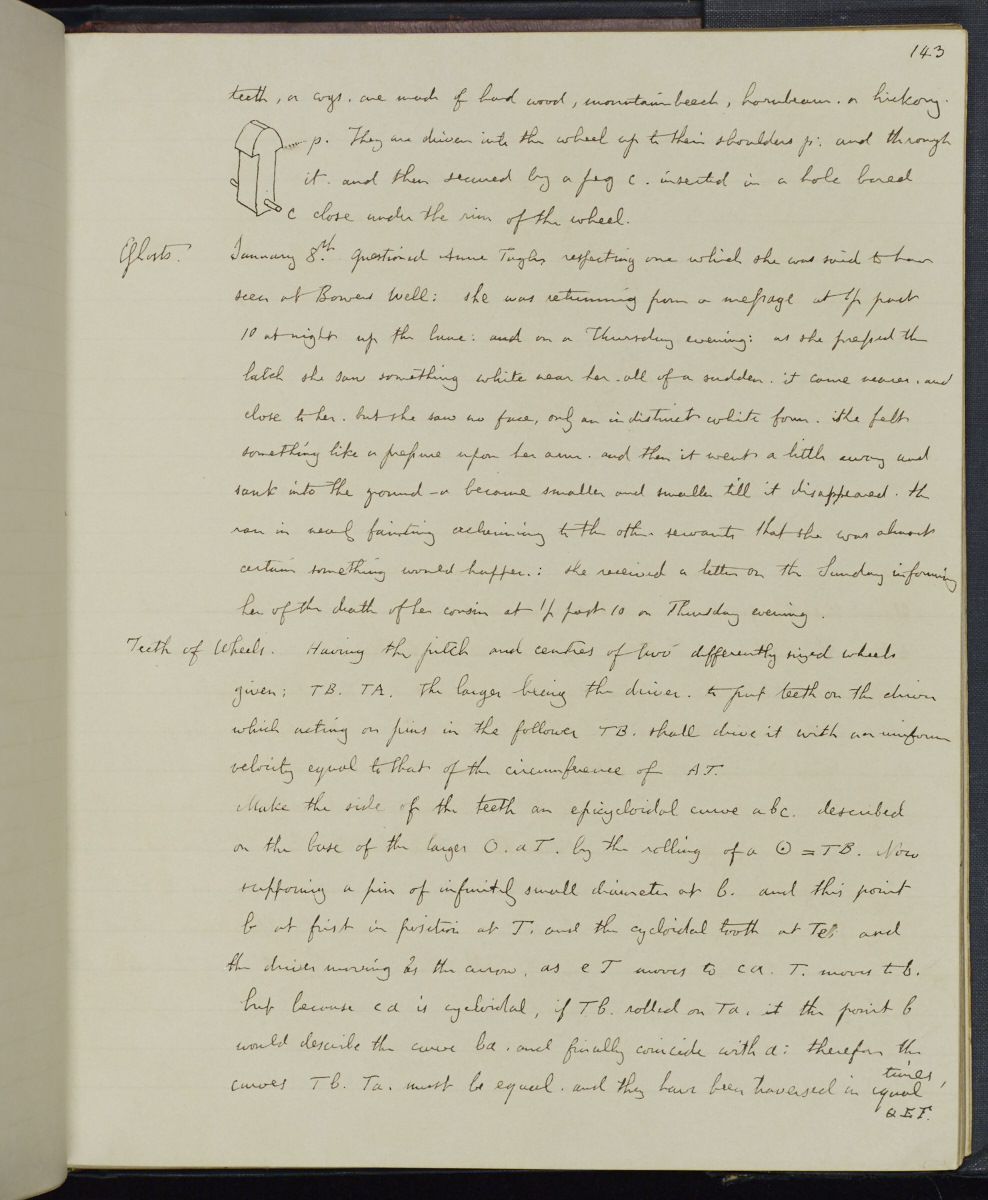 143
teeth, or cogs. are made of hard wood, mountain beech, hornbeam. or hickory.
p. They are driven into the wheel up to their shoulders p: and through
it. and then secured by a peg c. inserted in a hole bored
c close under the rim of the wheel.
Ghosts. January 8th. Questioned Anne Taylor respecting one which she was said to have
seen at Bowers Well: she was returning from a message at 1/2 past
10 at night up the lane: and on a Thursday evening: as she pressed the
latch she saw something white near her. all of a sudden. it came nearer. and
close to her. but she saw no face, only an indistinct white form. she felt
something like a pressure upon her arm. and then it went a little away and
sank into the ground - or became smaller and smaller till it disappeared. She
ran in nearly fainting exclaiming to the other servants that she was almost
certain something would happen: she received a letter on the Sunday informing
her of the death of her cousin at 1/2 past 10 on Thursday evening.
Teeth of Wheels. Having the pitch and centres of two differently sized wheels
given; TB. TA. The larger being the driver. to put teeth on the driver
which acting on pins in the follower TB. shall drive it with an uniform
velocity equal to that of the circumference of AT.
Make the side of the teeth an epicycloidal curve abc. described
on the base of the larger O. aT. by the rolling of a ⊙ = TB. Now
supposing a pin of infinitely small diameter at b. and this point
b at first in position at T. and the cycloidal tooth at Te; and
the driver moving as the arrow. as eT moves to ca. T. moves to b.
but because ca is cycloidal, if Tb. rolled on Ta. it the point b
would describe the curve ba. and finally coincide with a: therefore the
curves Tb. Ta. must be equal. and they have been traversed in equal
times,
QEI.